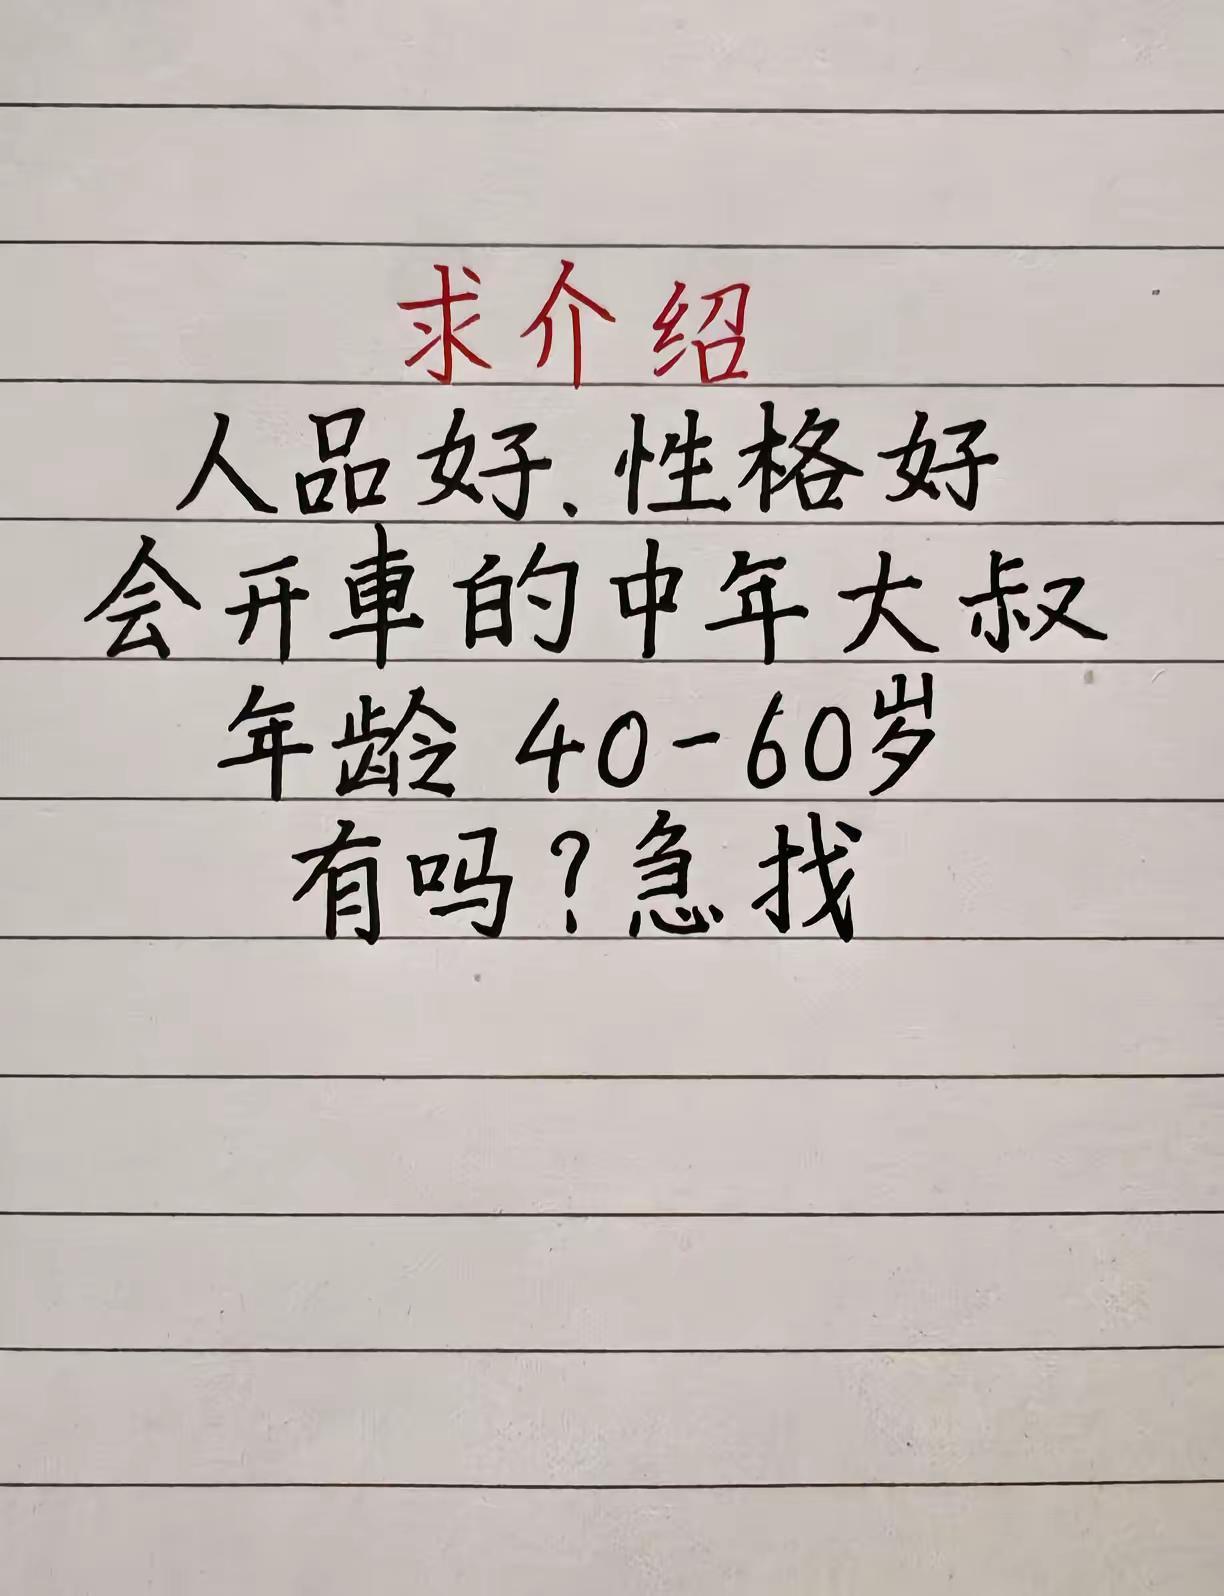 求介绍
人品好、性格好
会开車的中年大叔
年龄 40-60岁
有吗?急找